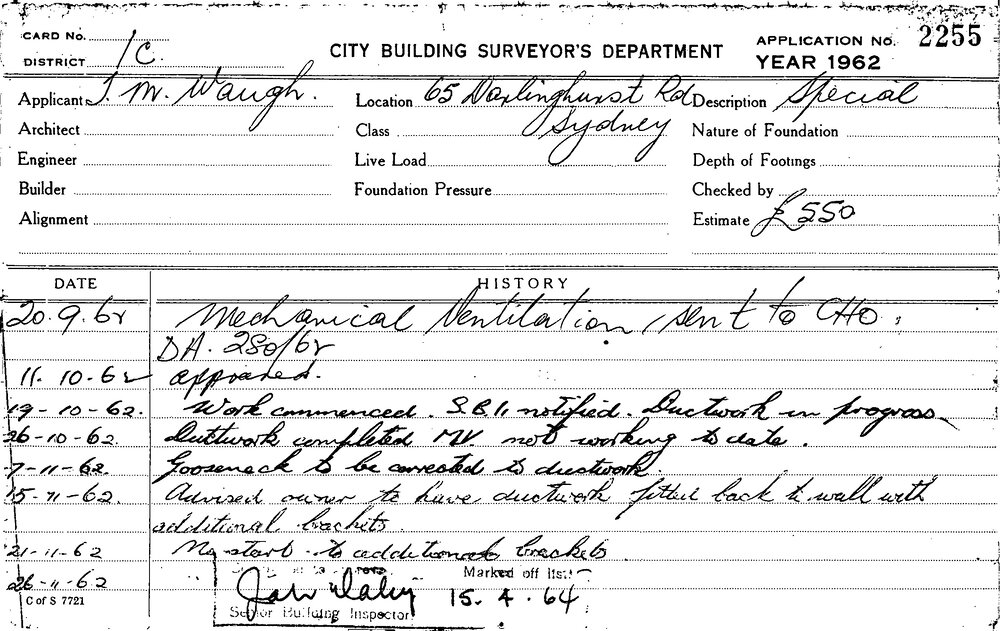 CARD No.
DISTRICT 1C.
CITY BUILDING SURVEYOR'S DEPARTMENT
APPLICATION No. 2255
YEAR 1962
Applicant J. M. Waugh. Location 65 Darlinghurst Rd Description Special
Architect Class Sydney Nature of Foundation
Engineer Live Load Depth of Footings
Builder Foundation Pressure Checked by
Alignment Estimate £550
DATE HISTORY
20.9.62 Mechanical Ventilation, sent to CHO.
DA. 280/62
11.10.62 approved.
19-10-62. Work commenced. S.B.I. notified. Ductwork in progress.
26-10-62. Ductwork completed MV not working to date.
7-11-62 Gooseneck to be corrected to ductwork.
15-11-62. Advised owner to have ductwork fitted back to wall with
additional brackets.
21-11-62 No start to additional brackets
26-11-62 Marked off list
15.4.64
Senior Building Inspector
C of S 7721